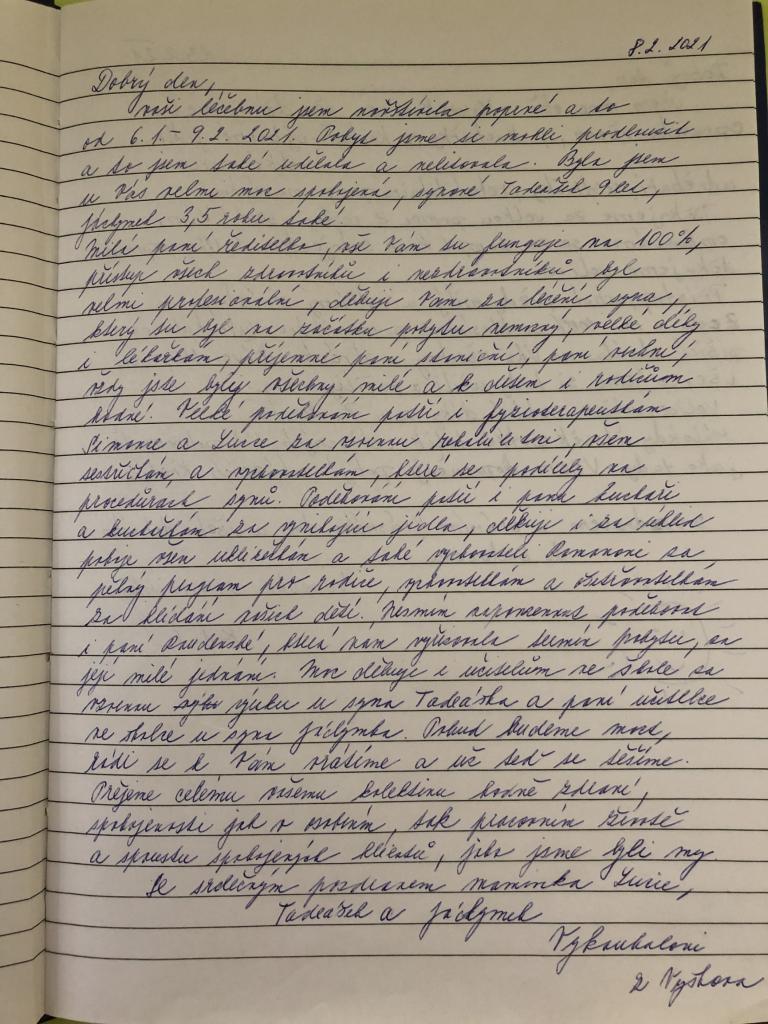 8.2. 2021
Dobrý den,
vaši léčebnu jsem navštívila poprvé a to
od 6.1. - 9.2. 2021. Pobyt jsme si mohli prodloužit
a to jsem také udělala a nelitovala. Byla jsem
u Vás velmi moc spokojená, synové Tadeášek 9 let,
Jáchymek 3,5 roku také.
Milá paní ředitelko, vše Vám tu funguje na 100%,
přístup všech zdravotníků i nezdravotníků byl
velmi profesionální, děkuji Vám za léčení syna,
který tu byl na začátku pobytu nemocný, velké díky
i lékařkám, příjemné paní staniční, paní vrchní,
vždy jste byly všechny milé a k dětem i rodičům
hodné. Velké poděkování patří i fyzioterapeutkám
Simonce a Lucce za vzornou rehabilitaci, všem
sestřičkám, a vychovatelkám, které se podílely na
procedurách synů. Poděkování patří i panu kuchaři
a kuchařkám za vynikající jídla, děkuji i za úklid
pokoje všem uklízečkám a také vychovateli Romanovi za
pěkný program pro rodiče, vychovatelkám a ošetřovatelkám
za hlídání našich dětí. Nesmím zapomenout poděkovat
i paní, která nám vyřizovala termín pobytu, za
její milé jednání. Moc děkuji i učitelům ve škole za
vzornou výuku u syna Tadeáška a paní učitelce
ve školce u syna Jáchymka. Pokud budeme moct,
rádi se k Vám vrátíme a už teď se těšíme.
Přejeme celému vašemu kolektivu hodně zdraví,
spokojenosti jak v osobním, tak pracovním životě
a spoustu spokojených klientů, jako jsme byli my.
Se srdečným pozdravem maminka Lucie,
Tadeášek a Jáchymek
Vykoukalovi
z Vyškova